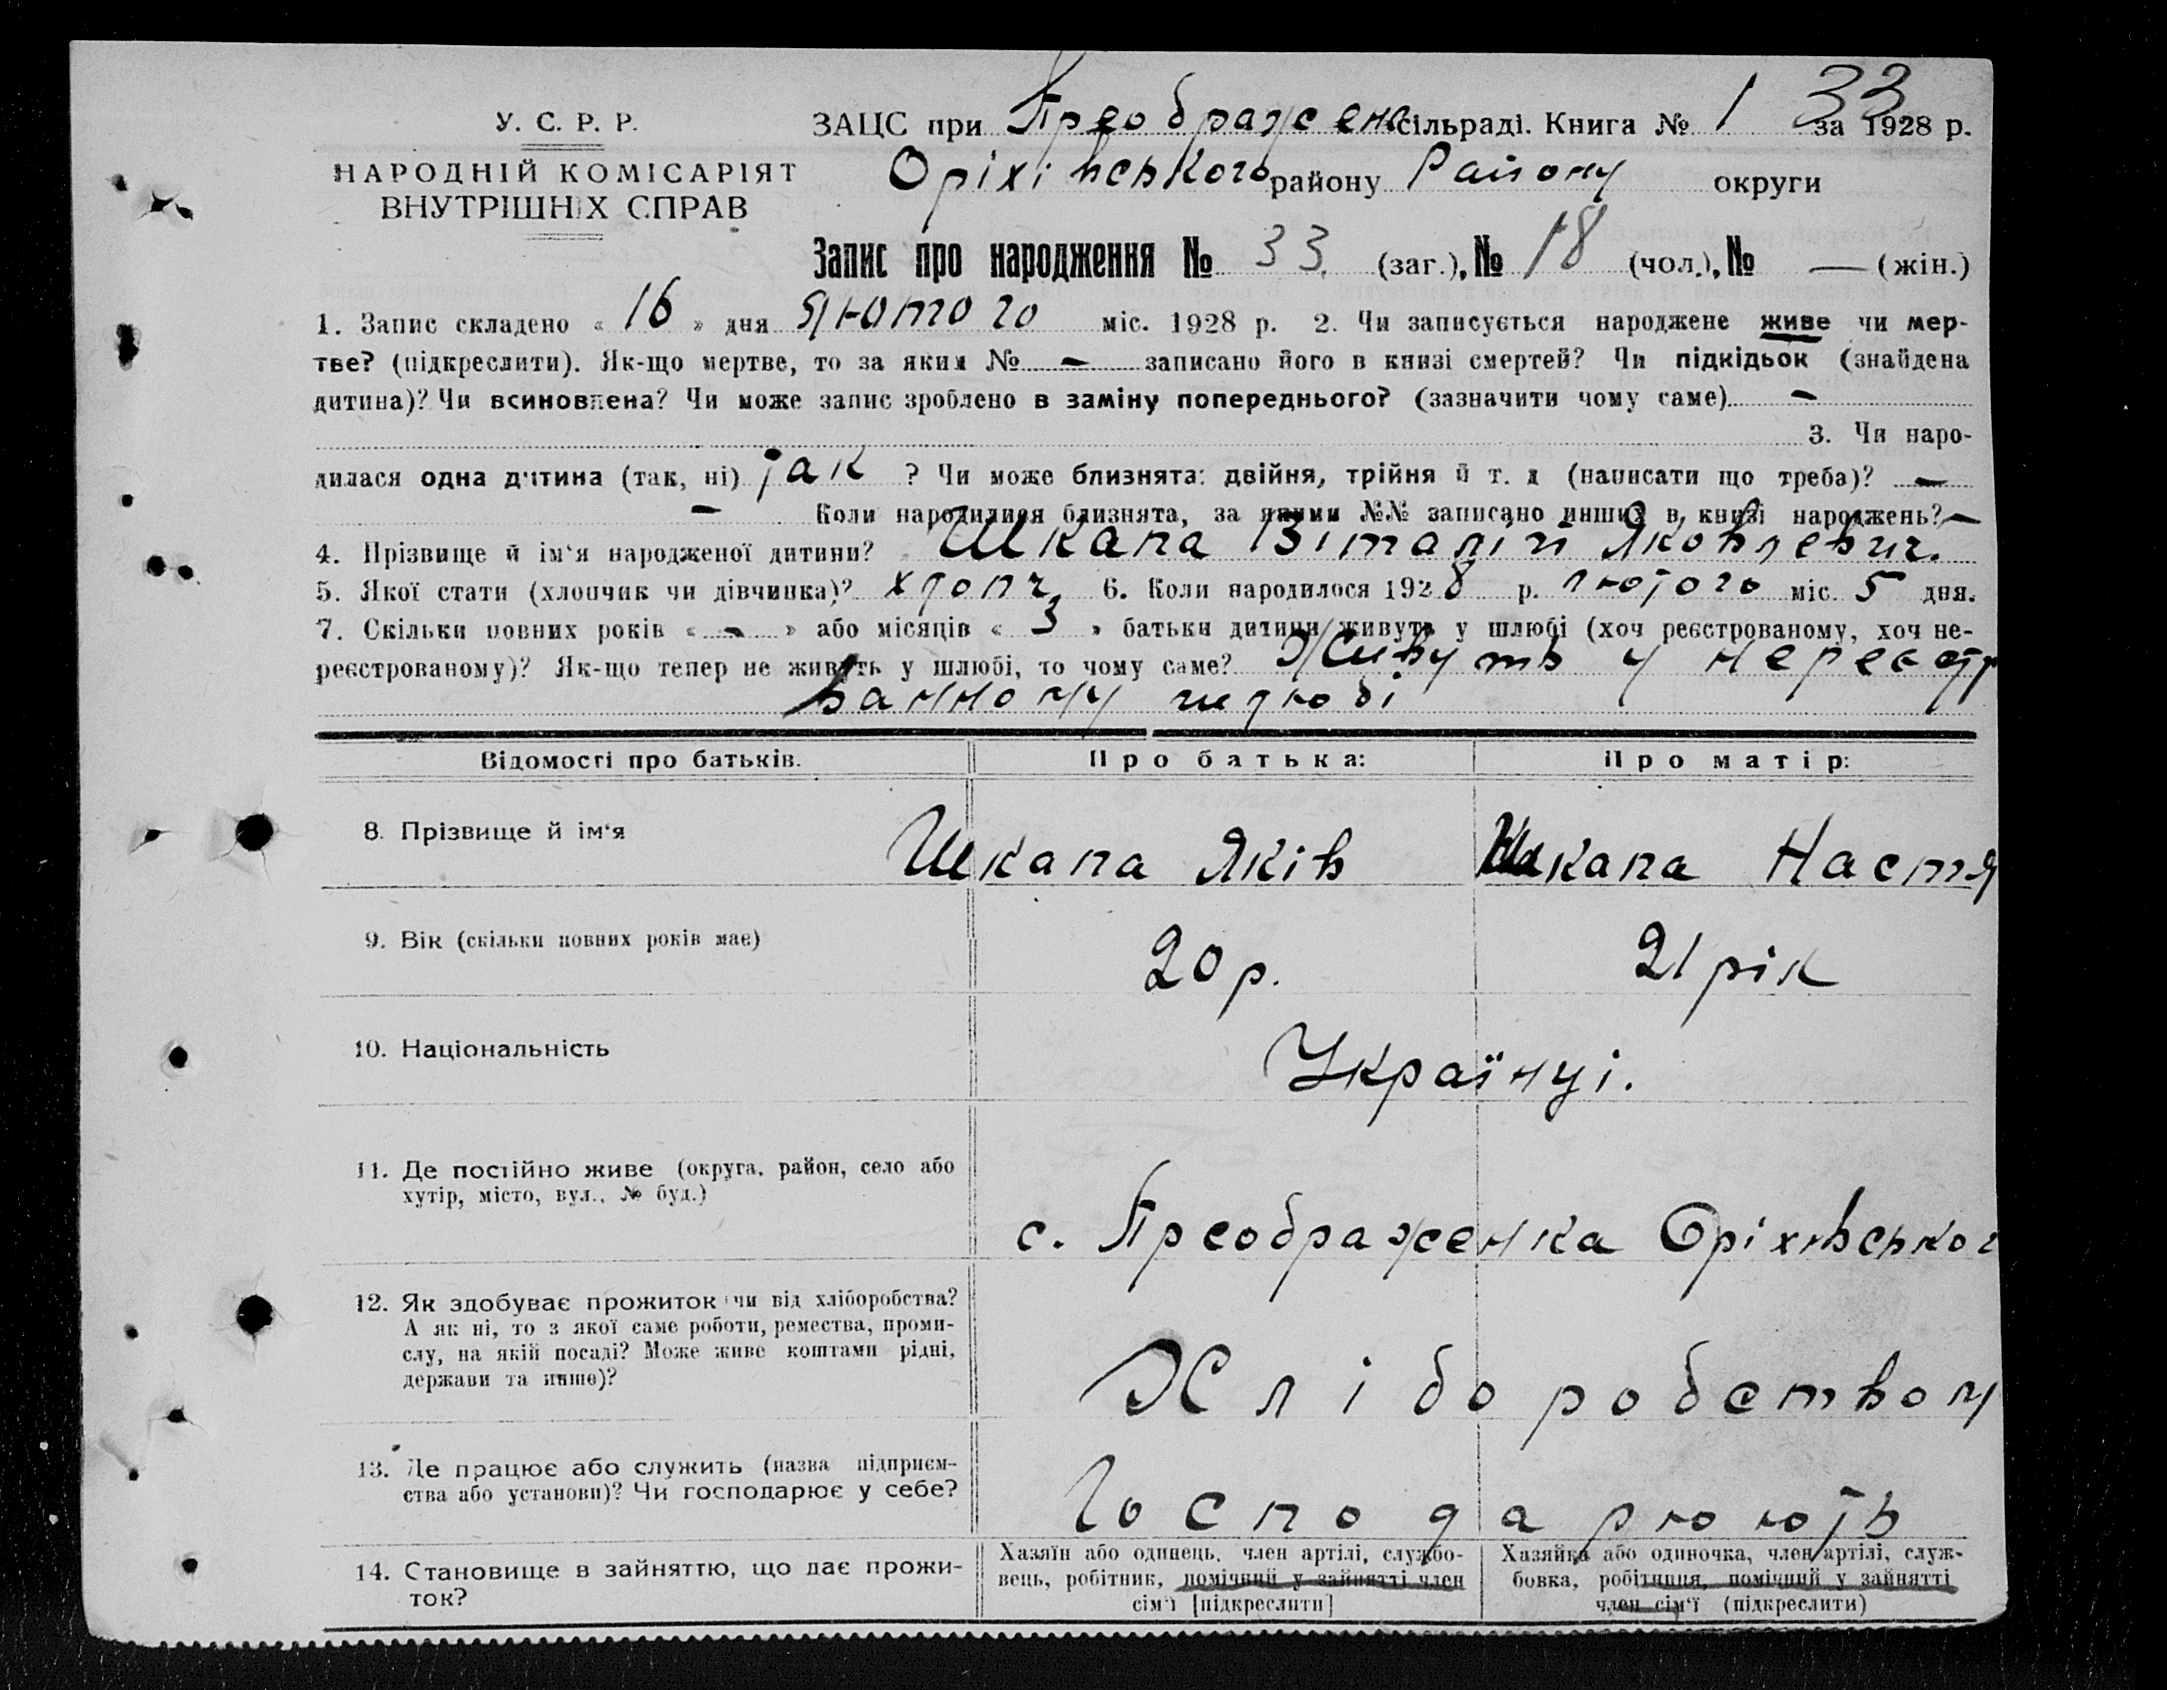 33
У. С. Р. Р.
НАРОДНІЙ КОМІСАРІЯТ
ВНУТРІШНІХ СПРАВ
ЗАЦС при Преображенс сільраді. Книга № 1 за 1928 р.
Оріхівського району Району округи
Запис про народження № 33. (заг.), № 18 (чол.), № — (жін.)
1. Запис складено « 16 » дня лютого міс. 1928 р. 2. Чи записується народжене живе чи мер-
тве? (підкреслити). Як-що мертве, то за яким № — записано його в книзі смертей? Чи підкідьок (знайдена
дитина)? Чи всиновлена? Чи може запис зроблено в заміну попереднього? (зазначити чому саме) —
3. Чи наро-
дилася одна дитина (так, ні) так ? Чи може близнята: двійня, трійня й т. д (написати що треба)? —
— Коли народилися близнята, за якими №№ записано инших в книзі народжень? —
4. Прізвище й ім‘я народженої дитини? Шкапа Віталій Яковлевич.
5. Якої стати (хлопчик чи дівчинка)? хлопч. 6. Коли народилося 1928 р. лютого міс. 5 дня.
7. Скільки повних років « — » або місяців « 3 » батьки дитини живуть у шлюбі (хоч реєстрованому, хоч не-
реєстрованому)? Як-що тепер не живуть у шлюбі, то чому саме? Живуть у нереєстр
ванному шлюбі
Відомості про батьків. Про батька: Про матір:
8. Прізвище й ім‘я Шкапа Яків Шкапа Настя
9. Вік (скільки повних років має) 20 р. 21 рік
10. Національність Українці.
11. Де постійно живе (округа, район, село або
хутір, місто, вул., № буд.)
с. Преображенка Оріхівськог
12. Як здобуває прожиток чи від хліборобства?
А як ні, то з якої саме роботи, ремества, проми-
слу, на якій посаді? Може живе коштами рідні,
держави та инше)?
Хліборобством
13. Де працює або служить (назва підприєм-
ства або установи)? Чи господарює у себе?
Господарюють
14. Становище в зайняттю, що дає прожи-
ток?
Хазяїн або одинець, член артілі, службо-
вець, робітник, помічний у зайнятті член
сім‘ї [підкреслити]
Хазяйка або одиночка, член артілі, служ-
бовка, робітниця, помічний у зайнятті
член сім‘ї (підкреслити)